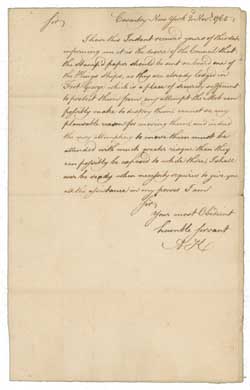 Sir Coventry New York 2 Nov.r 1765
I have this Instant receiv'd yours of this date
informing me it is the desire of the Council that
the Stamp'd paper should be put on board one of
the Kings Ships, as they are already lodg'd in
Fort George which is a place of security sufficient
to protect them from any attempt the Mob can
possibly make to destroy them, I cannot see any
plausable reason for moving them, and indeed
the very attempting to move them must be
attended with much greater risque than they
can possibly be expos'd to while there, I shall
ever be ready when necessity requires to give you
all the assistance in my power, I am
Sir
Your most Obedient
humble Servant
A. K